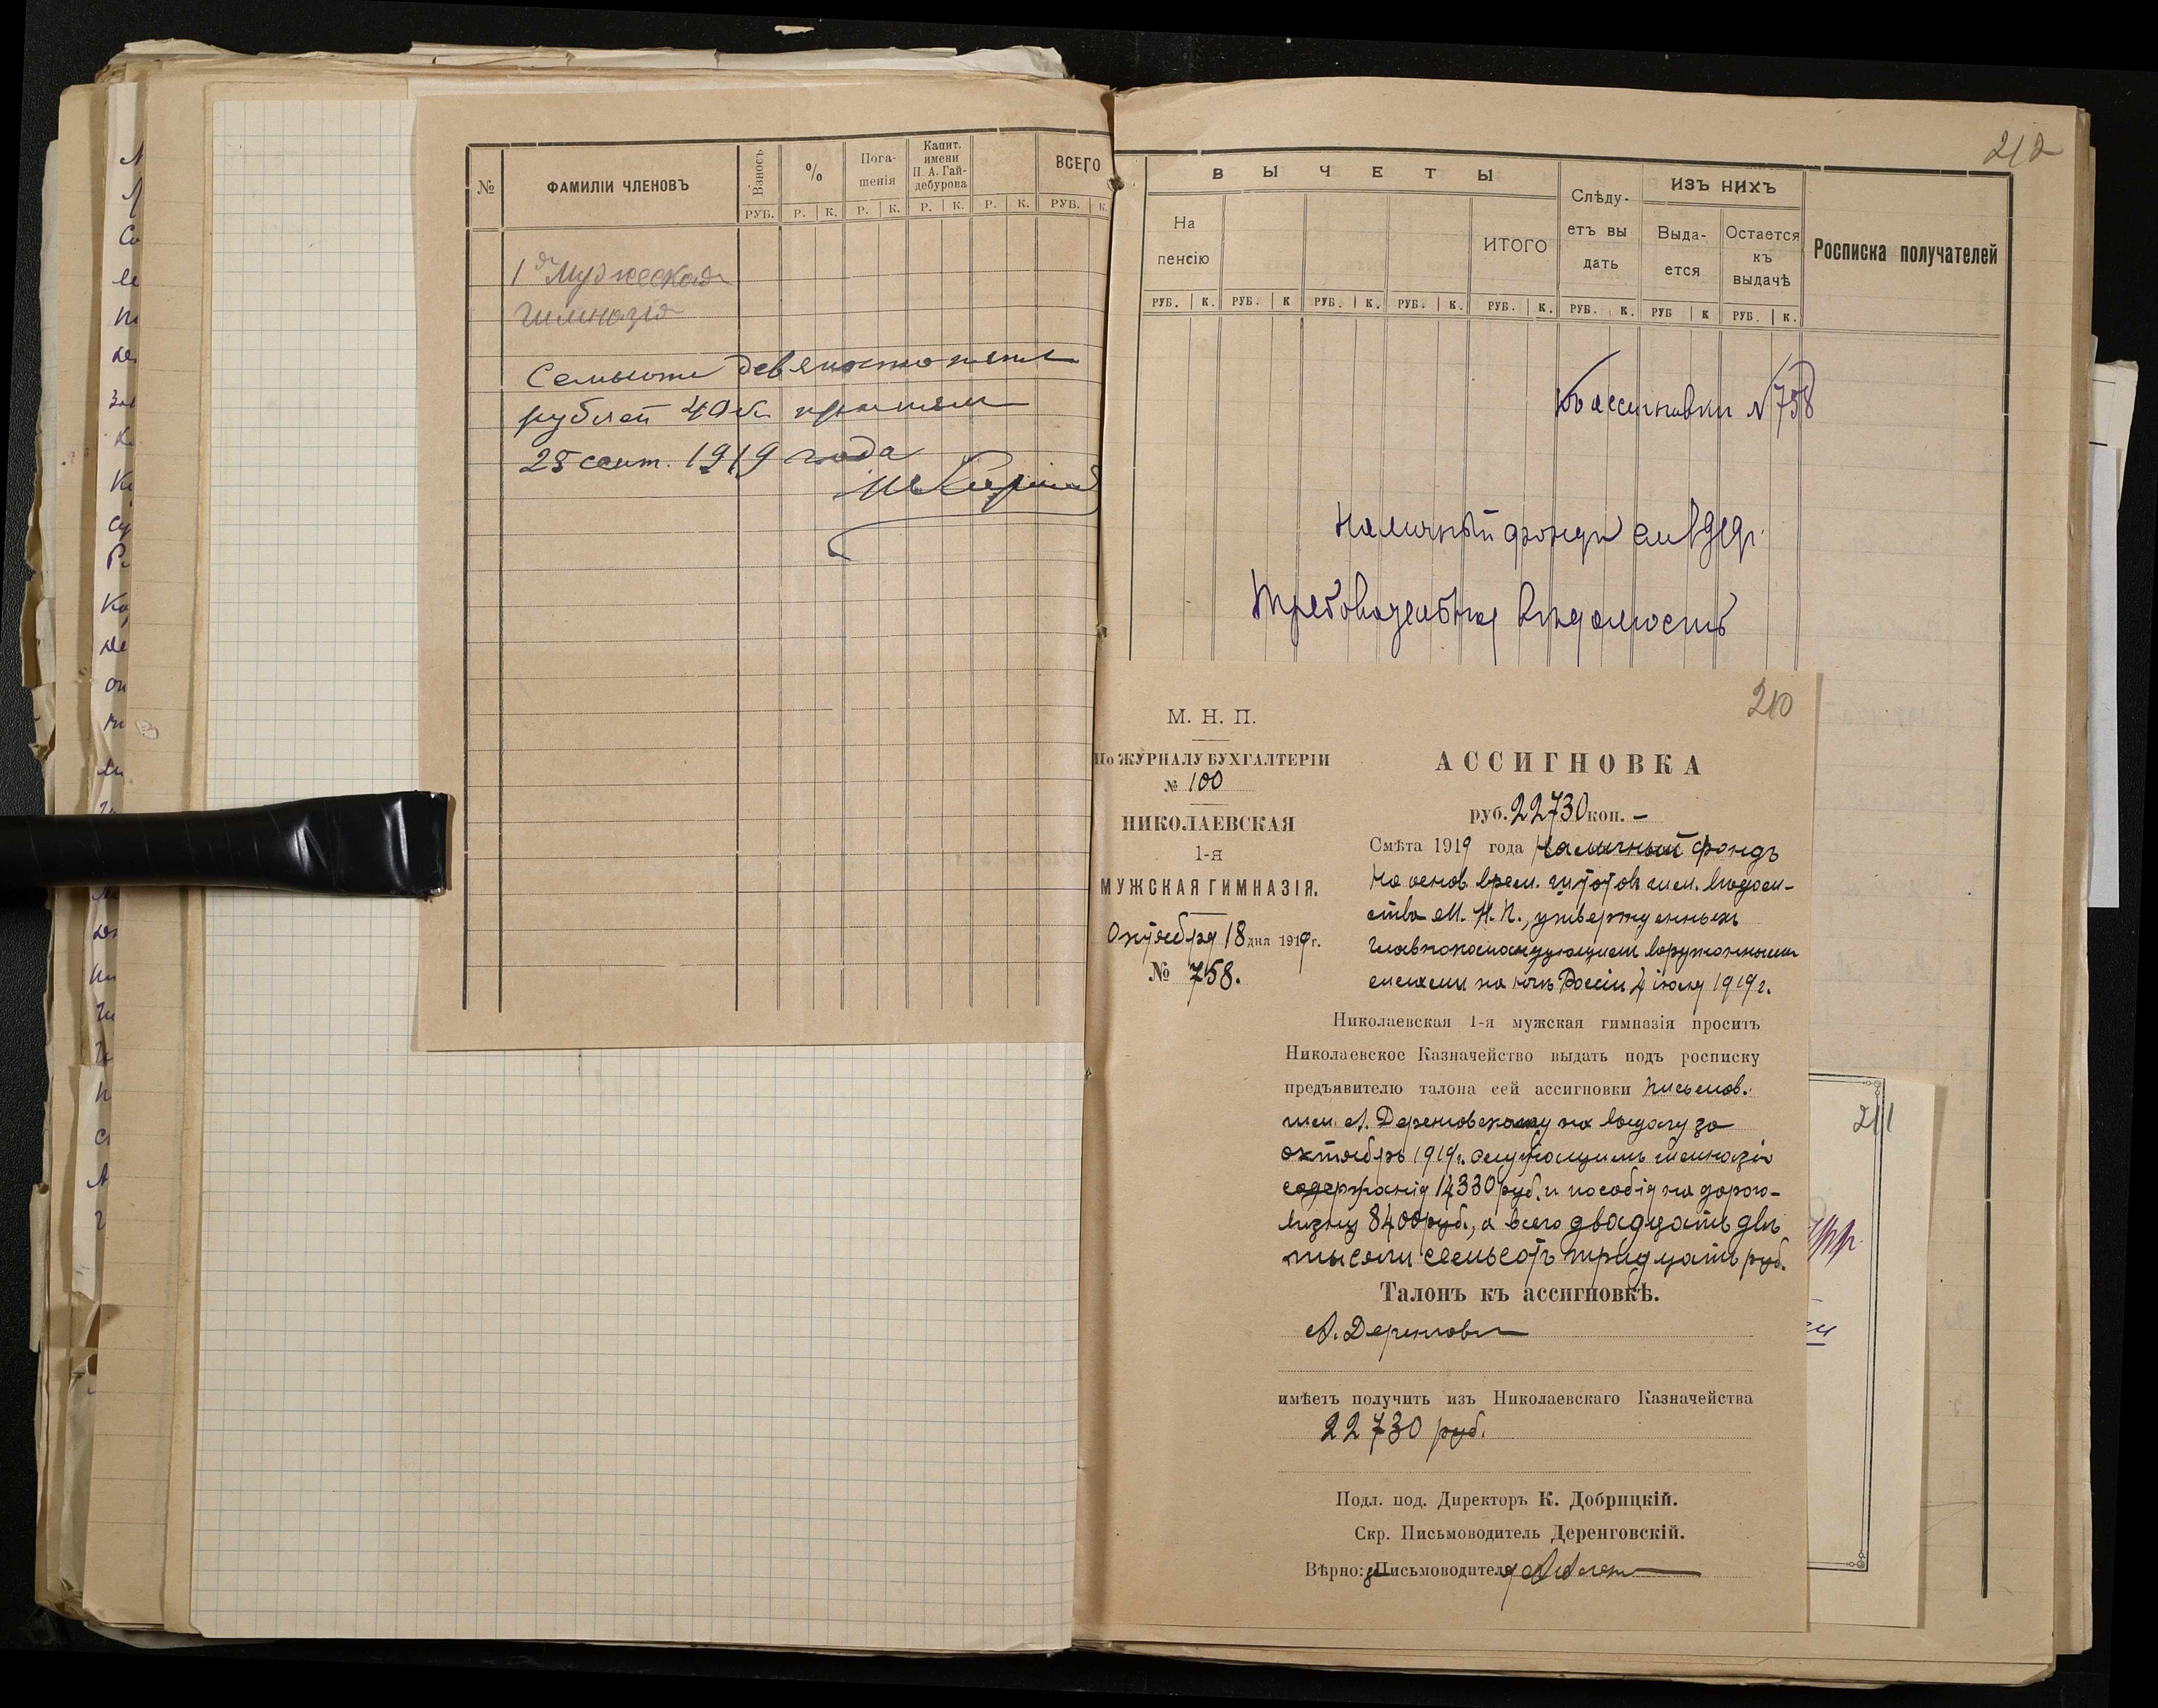 №
ФАМИЛІИ ЧЛЕНОВЪ
Взносъ
%
Пога-
шенія
Капит.
имени
П. А. Гай-
дебурова
ВСЕГО
РУБ. Р. К. Р. К. Р. К. Р. К. РУБ. К.
1я Мужская
Гимназія
Семьсот девяносто пять
рублей 40 к. принял
25 сент. 1919 года
212
ВЫЧЕТЫ
На
пенсію
ИТОГО
Слѣду-
етъ вы
дать
ИЗЪ НИХЪ
Выда-
ется
Остается
къ
выдачѣ
Росписка получателей
РУБ. К. РУБ. К РУБ. К. РУБ. К. РУБ. К. РУБ. К. РУБ К РУБ. К.
Къ ассигновки № 758
Наличный фондъ
Требовательная вѣдомость
210
М. Н. П.
По ЖУРНАЛУ БУХГАЛТЕРІИ
№ 100
НИКОЛАЕВСКАЯ
1-я
МУЖСКАЯ ГИМНАЗІЯ.
Октября 18 дня 1919 г.
№ 758.
АССИГНОВКА
руб. 22730 коп. –
Смѣта 1919 года Наличный фондъ
На основ. врем. штатовъ гим. вѣдом-
ства М. Н. П., утвержденныхъ
Главнокомандующимъ вооруженными
силами на югѣ Россіи 4 іюля 1919 г.
Николаевская 1-я мужская гимназія проситъ
Николаевское Казначейство выдать подъ росписку
предъявителю талона сей ассигновки письмов.
гим. А. Деренговскому на выдачу за
октябрь 1919 г. служащимъ гимназіи
содержанія 14330 руб. и пособія на дорого-
визну 8400 руб., а всего двадцать двѣ
тысячи семьсотъ тридцать руб.
Талонъ къ ассигновкѣ.
А. Деренговск
имѣетъ получить изъ Николаевскаго Казначейства
22730 руб.
Подл. под. Директоръ К. Добрицкій.
Скр. Письмоводитель Деренговскій.
Вѣрно: за Письмоводителя
211